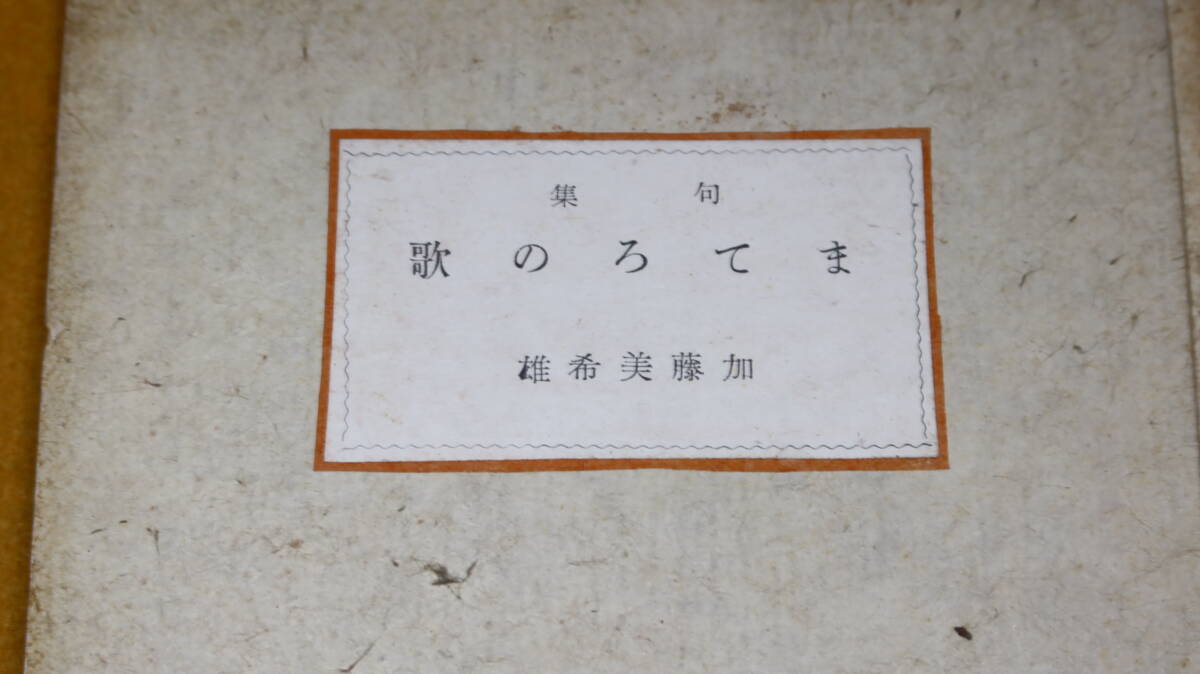 句集
まてろの歌
加藤美希雄